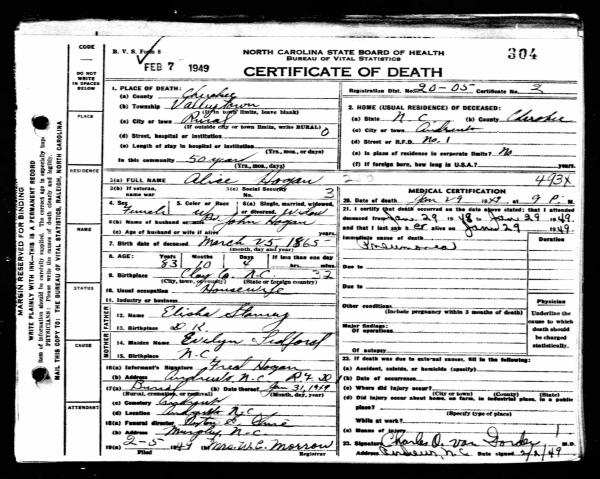 B. V. S. Form 8
FEB 7 1949
NORTH CAROLINA STATE BOARD OF HEALTH
BUREAU OF VITAL STATISTICS
CERTIFICATE OF DEATH
304
Registration Dist. No. 20-05 Certificate No. 3
CODE
DO NOT WRITE IN SPACES BELOW
PLACE
RESIDENCE
NAME
STATUS
CAUSE
ATTENDANT
MARGIN RESERVED FOR BINDING
WRITE PLAINLY WITH INK—THIS IS A PERMANENT RECORD
MAIL THIS COPY TO: THE BUREAU OF VITAL STATISTICS, RALEIGH, NORTH CAROLINA
1. PLACE OF DEATH:
(a) County Cherokee
(b) Township Valleytown
(If in town limits, leave blank)
(c) City or town Rural
(If outside city or town limits, write RURAL)
(d) Street, hospital or institution 0
(e) Length of stay in hospital or institution
(Yrs., mos., days)
In this community 50 year
(Yrs., mos., days)
2. HOME (USUAL RESIDENCE) OF DECEASED:
(a) State N. C. (b) County Cherokee
(c) City or town Andrews
(d) Street or R.F.D. No. 1
(e) Is place of residence in corporate limits? No
(f) If foreign born, how long in U.S.A.? years.
3(a) FULL NAME Alice Hogan
3(b) If veteran, war 3(c) Social Security No. 3
4. Sex Female 5. Color or Race W 6(a) Single, married, widowed, or divorced. Widow
6(b) Name of husband or wife John Hogan
6(c) Age of husband or wife if alive
7. Birth date of deceased March 25, 1865
(month, day and year)
8. AGE: Years 83 Months 10 Days 4 If less than one day hrs. min.
9. Birthplace Clay Co. N.C. 32
(City, town, or county) (State or foreign country)
10. Usual occupation Housewife
11. Industry or business
FATHER
12. Name Elisha Stamey
13. Birthplace D. K.
MOTHER
14. Maiden Name Evelyn
15. Birthplace N.C.
16(a) Informant's Signature Fred Hogan
(b) Address Andrews, N.C. R.F.D. 1
17(a) Burial (b) Date thereof Jan 31, 1949
(Burial, cremation, or removal) (Month, day, year)
(c) Cemetery
(d) Location Andrews N.C.
18(a) Funeral director
(b) Address Murphy, N.C.
19(a) 2-5 49 (b) Mrs. W. E. Morrow
Registrar
MEDICAL CERTIFICATION 493X
20. Date of death Jan 29 1949 at 9 P.
21. I certify that death occurred on the date above stated; that I attended
deceased from Jan. 29 1948 to Jan 29 1949
and that I last saw her alive on Jan 29 1949.
Immediate cause of death Duration
Pneumonia
Due to
Due to
Other conditions
(Include pregnancy within 3 months of death)
Major findings:
Of operations
Of autopsy
Physician
Underline the cause to which death should be charged statistically.
22. If death was due to external causes, fill in the following:
(a) Accident, suicide, or homicide (specify)
(b) Date of occurrence
(c) Where did injury occur?
(City or town) (County) (State)
(d) Did injury occur about home, on farm, in industrial place, in a public place?
(Specify type of place)
While at work?
(e) Means of injury
23. Signature Charles O. Van Gorder M.D.
Address Andrews, N.C. Date signed 2/2/49